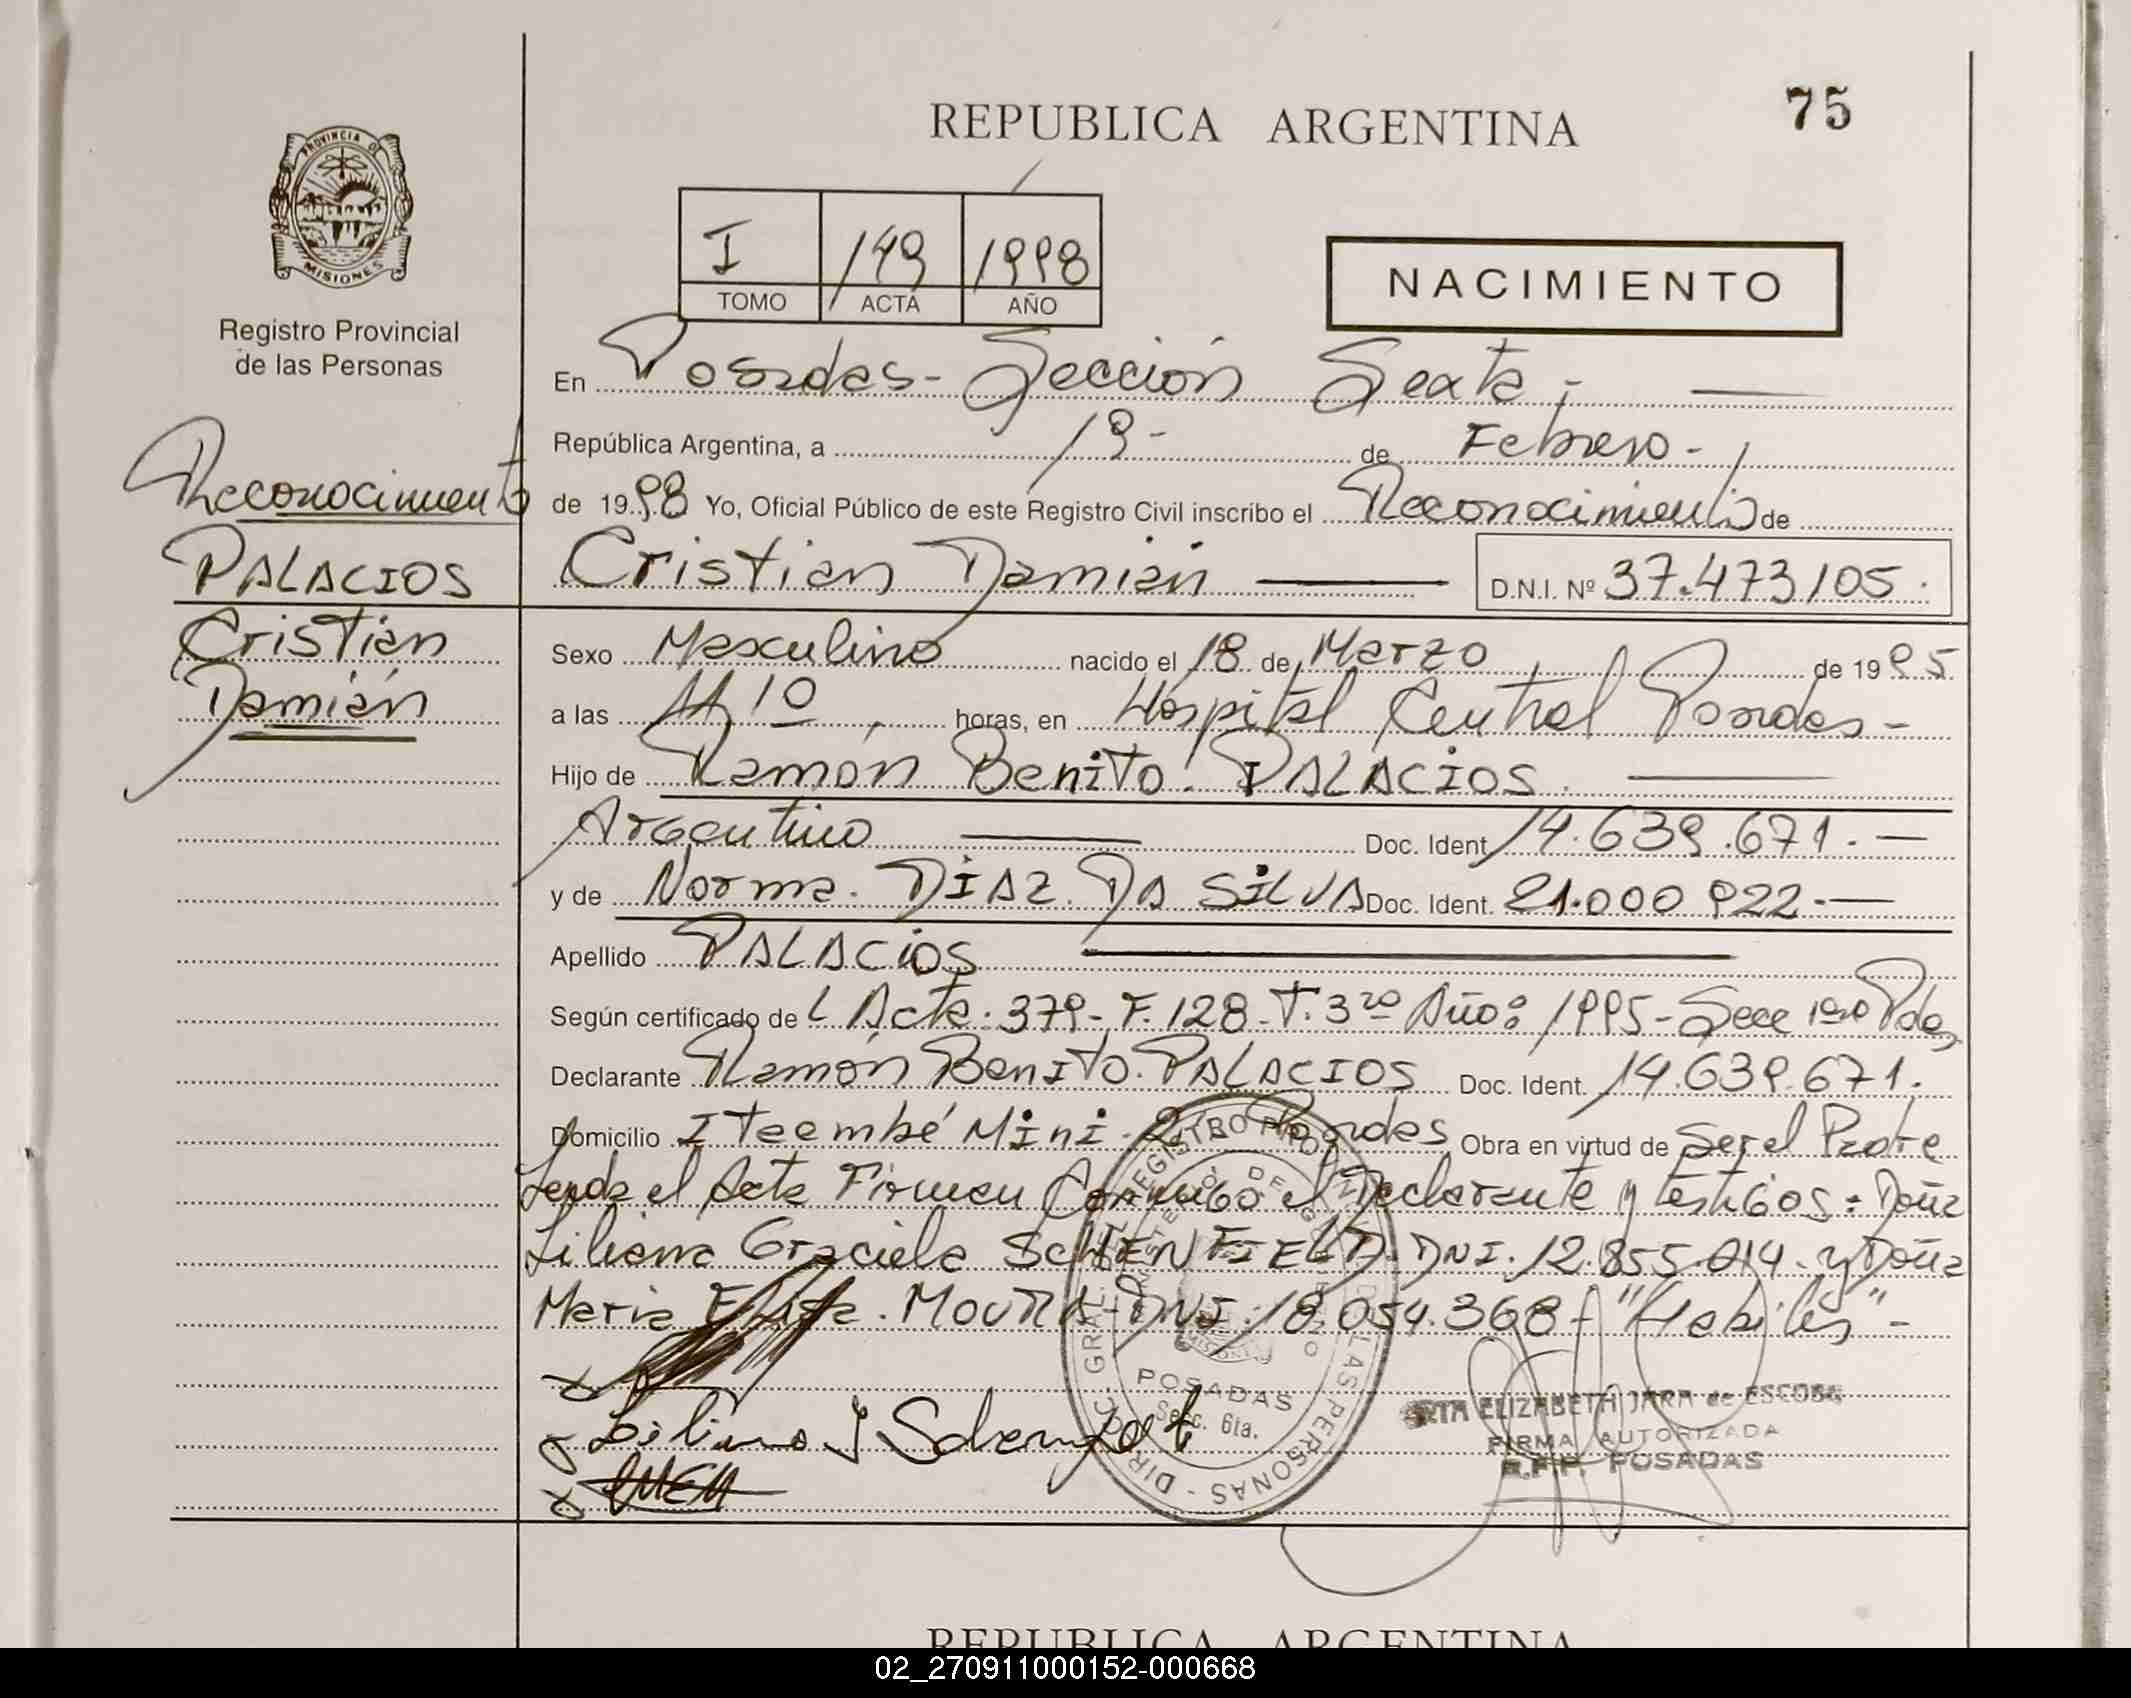 REPUBLICA ARGENTINA
75
PROVINCIA DE
MISIONES
Registro Provincial
de las Personas
I 149 1998
TOMO ACTA AÑO
NACIMIENTO
En Posadas - Sección Sexta -
República Argentina, a 19 - de Febrero -
de 1998 Yo, Oficial Público de este Registro Civil inscribo el Reconocimiento de
Cristian Damián D.N.I. Nº 37.473105.
Reconocimiento
PALACIOS
Cristian
Damián
Sexo Masculino nacido el 18 de Marzo de 1995
a las 10 horas, en Hospital Central Posadas -
Hijo de Ramón Benito. PALACIOS.
Argentino Doc. Ident 14.639.671. -
y de Norma. DIAZ. DA SILVA Doc. Ident. 21.000 922. -
Apellido PALACIOS
Según certificado de L Acta. 379 - F. 128 - T. 3ro Año: 1995 - Secc 1era Pdas
Declarante Ramón Benito. PALACIOS Doc. Ident. 14.639.671.
Domicilio Itaembé Mini. 2 - Posadas Obra en virtud de Ser el Padre
Leída el Acta Firman Conmigo el Declarante y testigos: Doña
Liliana Graciela SCHENFIELT. DNI. 12.855.014. y Doña
Maria Elisa. MOURA - DNI. 18.054.368 - "Hábiles" -
POSADAS
Secc. 6ta.
ELIZABETH JARA de ESCOBA
FIRMA AUTORIZADA
R.P.P. POSADAS
REPUBLICA ARGENTINA
02_270911000152-000668